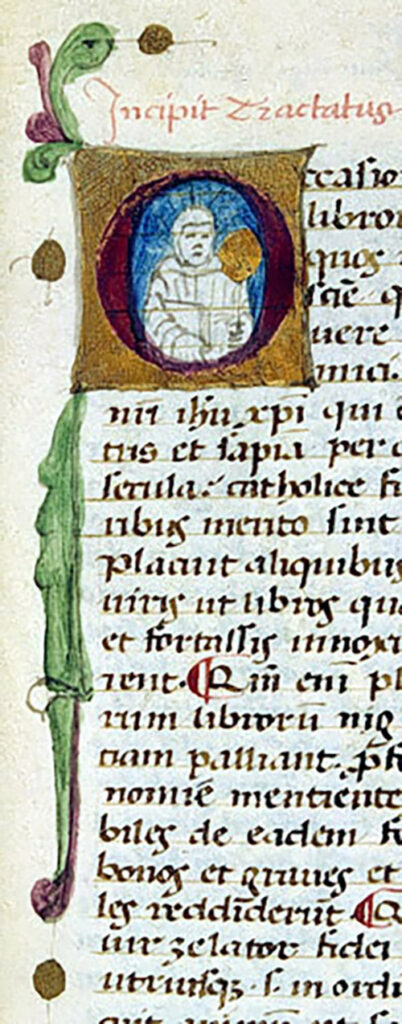 Incipit Tractatus
Occasio
libror
quos
scie q
uere
imici.
nri ihu xpi qui e
tris et sapia per q
secula. catholice fi
ribus merito sint
placuit aliquibus
uiris ut libros qu
et fortassis innoxi
rent. Qm eni pl
rum libroru nig
ciam palliant. pfe
nomie mentiente
biles de eadem fe
bonos et graues et
les reddiderut Q
uir zelator fidei
utriusqz .s. in ordi